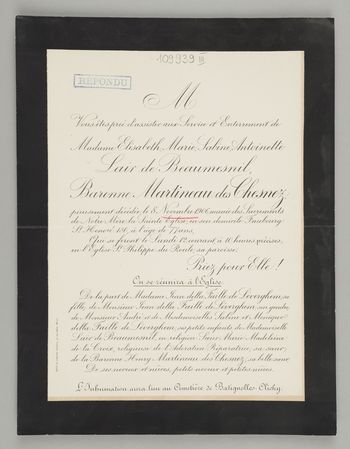 109939 III
RÉPONDU
M
Vous êtes prié d'assister aux Service et Enterrement de
Madame Elisabeth, Marie, Sabine, Antoinette
Lair de Beaumesnil,
Baronne Martineau des Chesnez
pieusement décédée, le 8 Novembre 1906 munie des Sacrements
de Notre Mère la Sainte Eglise, en son domicile Faubourg
St Honoré 180, à l'âge de 77 ans,
Qui se feront le Lundi 12 courant à 10 heures précises,
en l'Eglise St Philippe du Roule, sa paroisse.
Priez pour Elle !
On se réunira à l'Eglise.
De la part de Madame Jean della Faille de Leverghem, sa
fille, de Monsieur Jean della Faille de Leverghem, son gendre,
de Monsieur André et de Mesdemoiselles Sabine et Monique
della Faille de Leverghem, ses petits enfants, de Mademoiselle
Lair de Beaumesnil, en religion Sœur Marie Madeleine
de la Croix, religieuse de l'Adoration Réparatrice, sa sœur,
de la Baronne Henry Martineau des Chesnez, sa belle sœur
De ses neveux et nièces, petits neveux et petites nièces.
L'Inhumation aura lieu au Cimetière de Batignolles-Clichy.